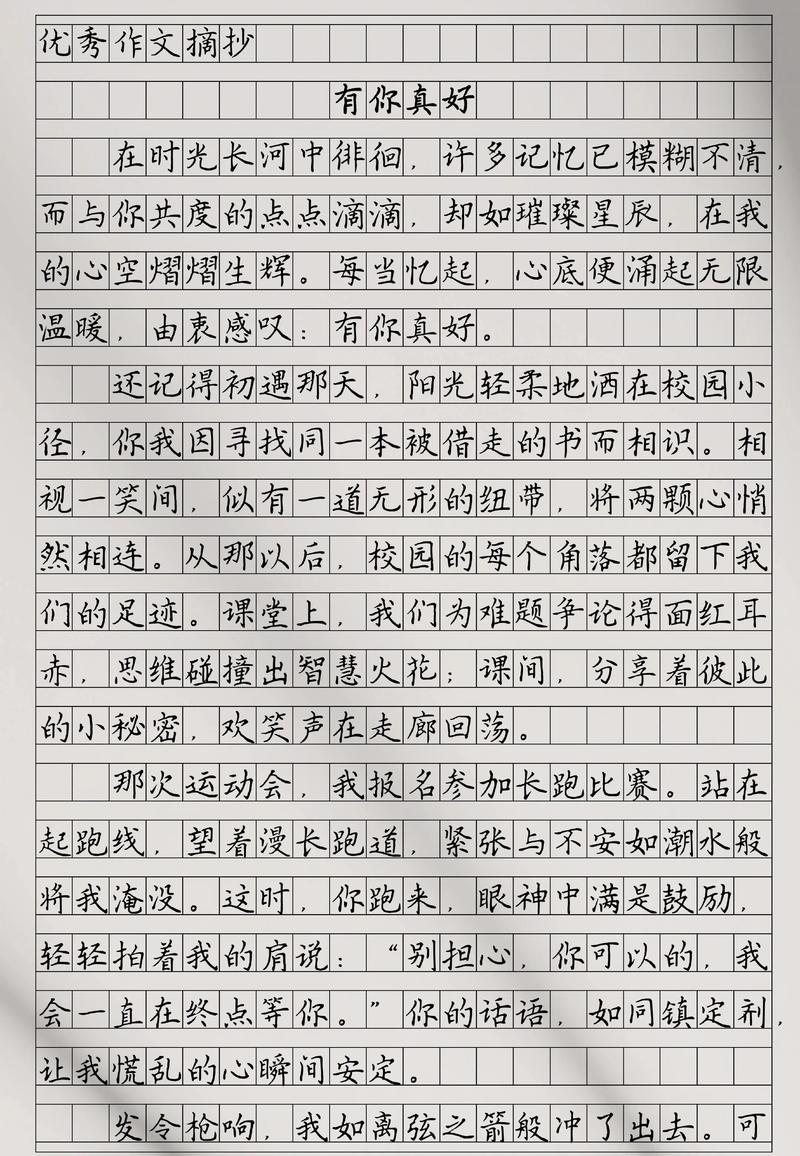 优秀作文摘抄
有你真好
在时光长河中徘徊，许多记忆已模糊不清，
而与你共度的点点滴滴，却如璀璨星辰，在我
的心空熠熠生辉。每当忆起，心底便涌起无限
温暖，由衷感叹：有你真好。
还记得初遇那天，阳光轻柔地洒在校园小
径，你我因寻找同一本被借走的书而相识。相
视一笑间，似有一道无形的纽带，将两颗心悄
然相连。从那以后，校园的每个角落都留下我
们的足迹。课堂上，我们为难题争论得面红耳
赤，思维碰撞出智慧火花；课间，分享着彼此
的小秘密，欢笑声在走廊回荡。
那次运动会，我报名参加长跑比赛。站在
起跑线，望着漫长跑道，紧张与不安如潮水般
将我淹没。这时，你跑来，眼神中满是鼓励，
轻轻拍着我的肩说：“别担心，你可以的，我
会一直在终点等你。”你的话语，如同镇定剂，
让我慌乱的心瞬间安定。
发令枪响，我如离弦之箭般冲了出去。可